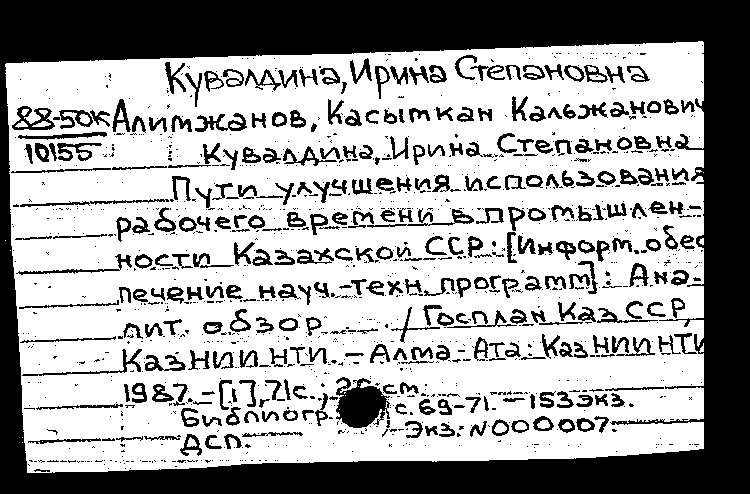 Кувалдина, Ирина Степановна
88-50к Алимжанов, Касымкан Кальжанович
10155 Кувалдина, Ирина Степановна
Пути улучшения использования
рабочего времени в промышлен-
ности Казахской ССР: [Информ. обес
печение науч.-техн. программ]: Ана-
лит. обзор / Госплан Каз ССР,
КазНИИНТИ. - Алма-Ата: КазНИИНТИ
1987. - [1], 71 с.; см.
Библиогр. с. 69-71. - 153 экз.
Экз: N000007.
ДСП.